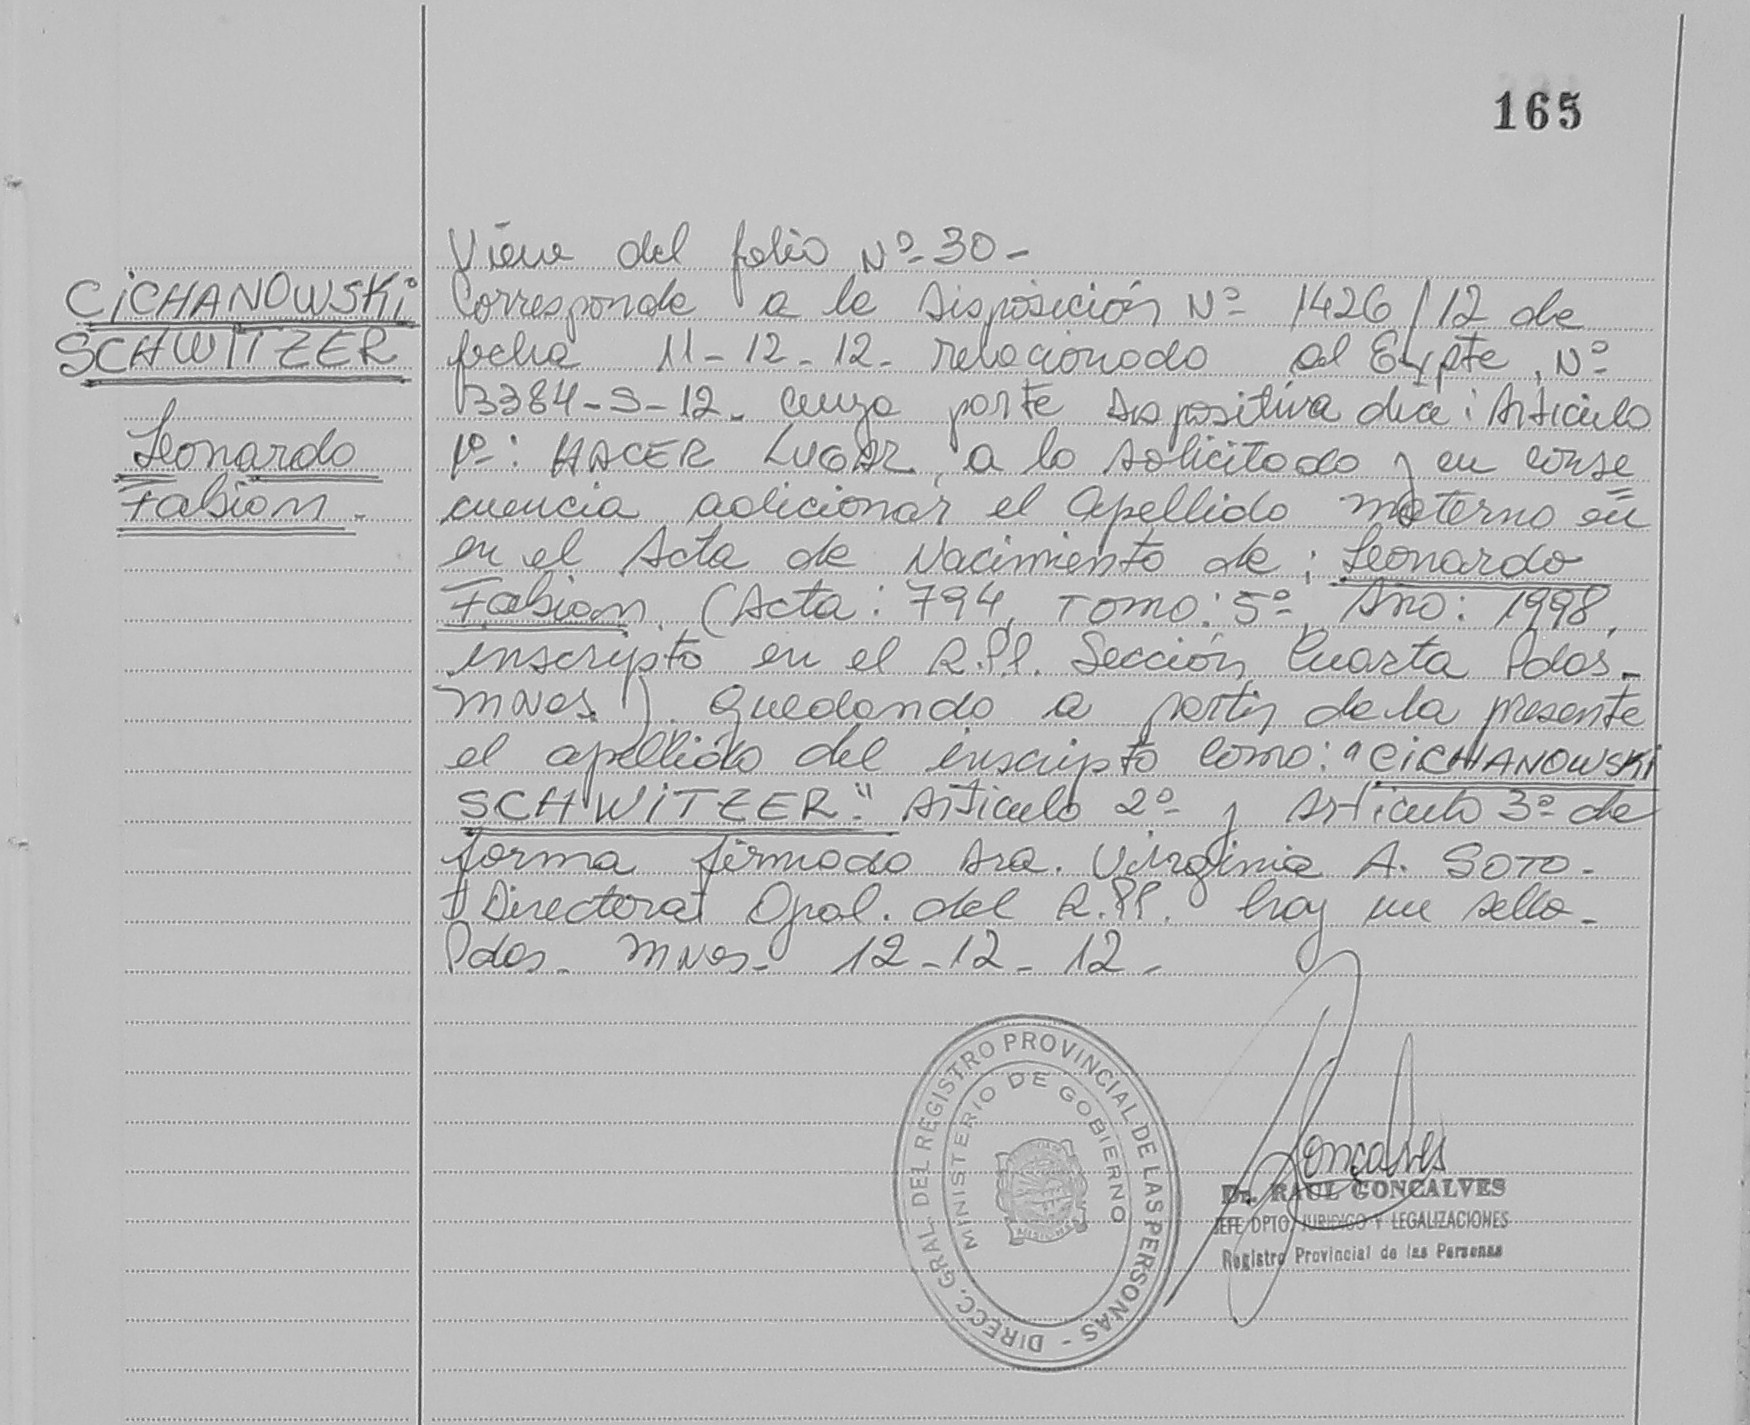 165
CICHANOWSKI
SCHWITZER
Leonardo
Fabian.
Viene del folio Nº 30-
Corresponde a la Disposición Nº 1426/12 de
fecha 11-12-12- relacionado al Expte, Nº
3384-S-12- cuya parte dispositiva dice: Artículo
1º: HACER LUGAR, a lo solicitado y en conse
cuencia adicionar el apellido materno en
en el Acta de Nacimiento de: Leonardo
Fabian. (Acta: 794, Tomo: 5º, Año: 1998,
inscripto en el R.P.P. Sección Cuarta Pdas-
Mnes.). Quedando a partir de la presente
el apellido del inscripto como: "CICHANOWSKI
SCHWITZER". Artículo 2º y Artículo 3º de
forma firmado Dra. Virginia A. SOTO-
Directora Gral. del R.P.P. hay un sello-
Pdas- Mnes- 12-12-12-
DIRECC. GRAL. DEL REGISTRO PROVINCIAL DE LAS PERSONAS -
MINISTERIO DE GOBIERNO
MISIONES
Goncalves
Dr. RAUL GONCALVES
JEFE DPTO JURIDICO Y LEGALIZACIONES
Registro Provincial de las Personas